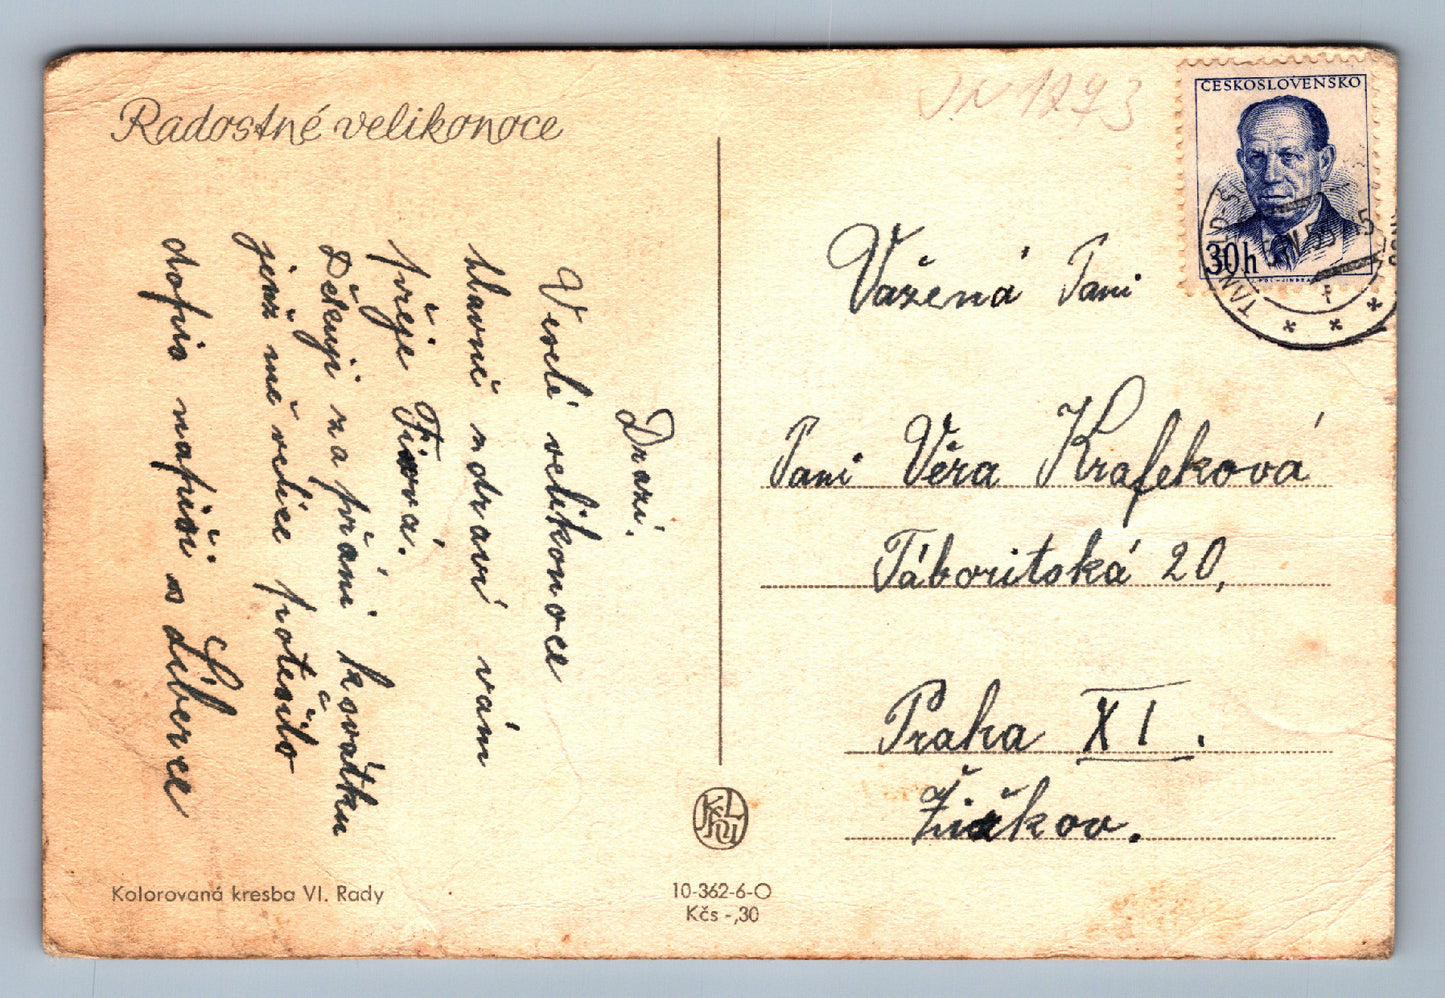 Radostné velikonoce
Drazí.
Veselé velikonoce
hlavně zdraví vám
přeje Fixová.
Děkuji za přání k svátku
jenž mě velice potěšilo
dopis napíši z Liberce
ČESKOSLOVENSKO
30h
Vážená Paní
Paní Věra Krafeková
Táboritská 20,
Praha XI.
Žižkov.
Kolorovaná kresba Vl. Rady
10-362-6-O
Kčs -,30